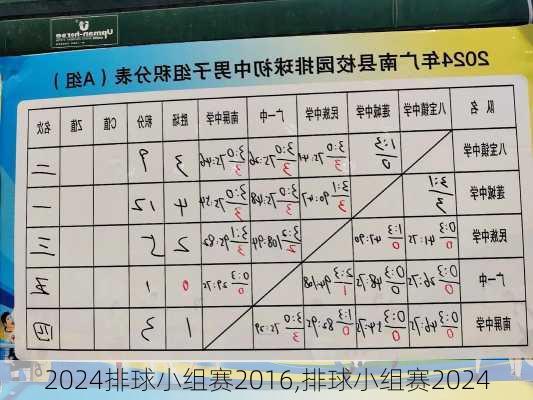 Upman-horse
2024年广南县校园排球初中男子组积分表（A组）
队 名 八宝镇中学 莲城中学 民族中学 广一中 南屏中学 胜场 积分 C值 Z值 名次
八宝镇中学 1:3 0 3:0 3 3:0 75:36 3 3:0 75:46 3 3 9 二
莲城中学 3:1 3 3:1 90:47 3 3:0 75:48 3 3:0 75:54 3 4 12 一
民族中学 0:3 41:75 0 1:3 47:90 0 3:2 108:94 2 3:1 95:82 3 2 5 三
广一中 0:3 36:75 0 0:3 48:75 0 2:3 94:108 1 0:3 39:75 0 0 1 五
南屏中学 0:3 46:75 0 0:3 54:75 0 1:3 82:95 0 3:0 75:39 3 1 3 四
2024排球小组赛2016,排球小组赛2024